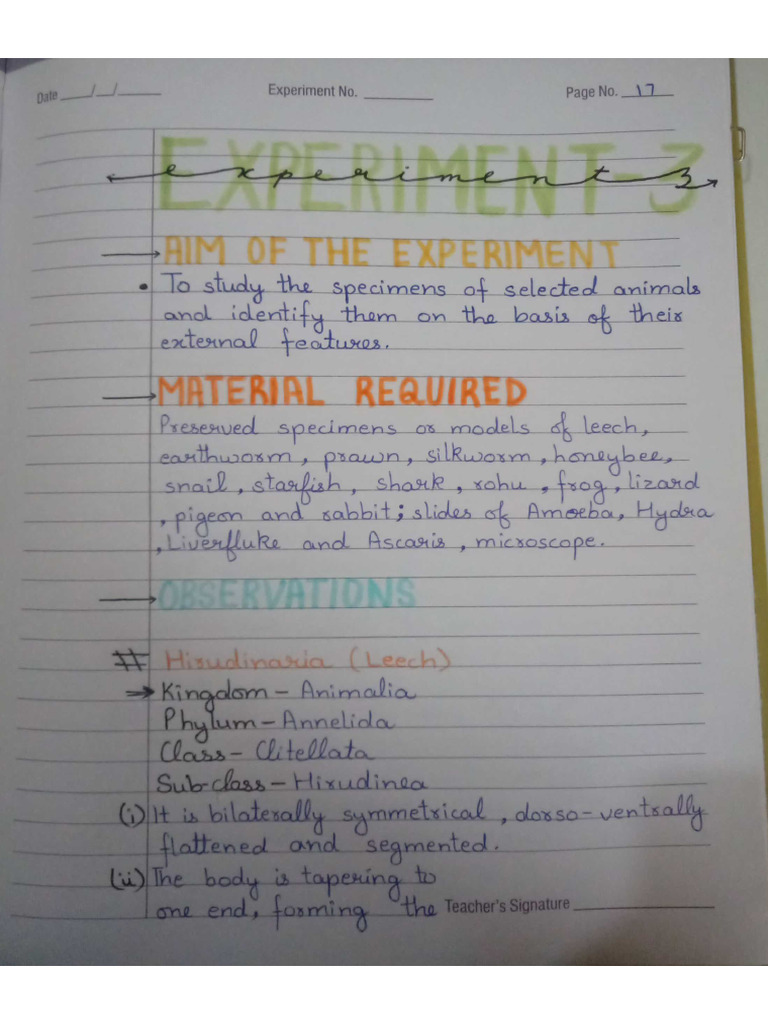 Date __/__/____ Experiment No. ________ Page No. 17
EXPERIMENT-3
experiment 3
AIM OF THE EXPERIMENT
• To study the specimens of selected animals
and identify them on the basis of their
external features.
MATERIAL REQUIRED
Preserved specimens or models of leech,
earthworm, prawn, silkworm, honeybee,
snail, starfish, shark, rohu, frog, lizard
, pigeon and rabbit; slides of Amoeba, Hydra
, Liverfluke and Ascaris, microscope.
OBSERVATIONS
# Hirudinaria (Leech)
→ Kingdom - Animalia
Phylum - Annelida
Class - Clitellata
Sub-class - Hirudinea
(i) It is bilaterally symmetrical, dorso-ventrally
flattened and segmented.
(ii) The body is tapering to
one end, forming the Teacher's Signature ________